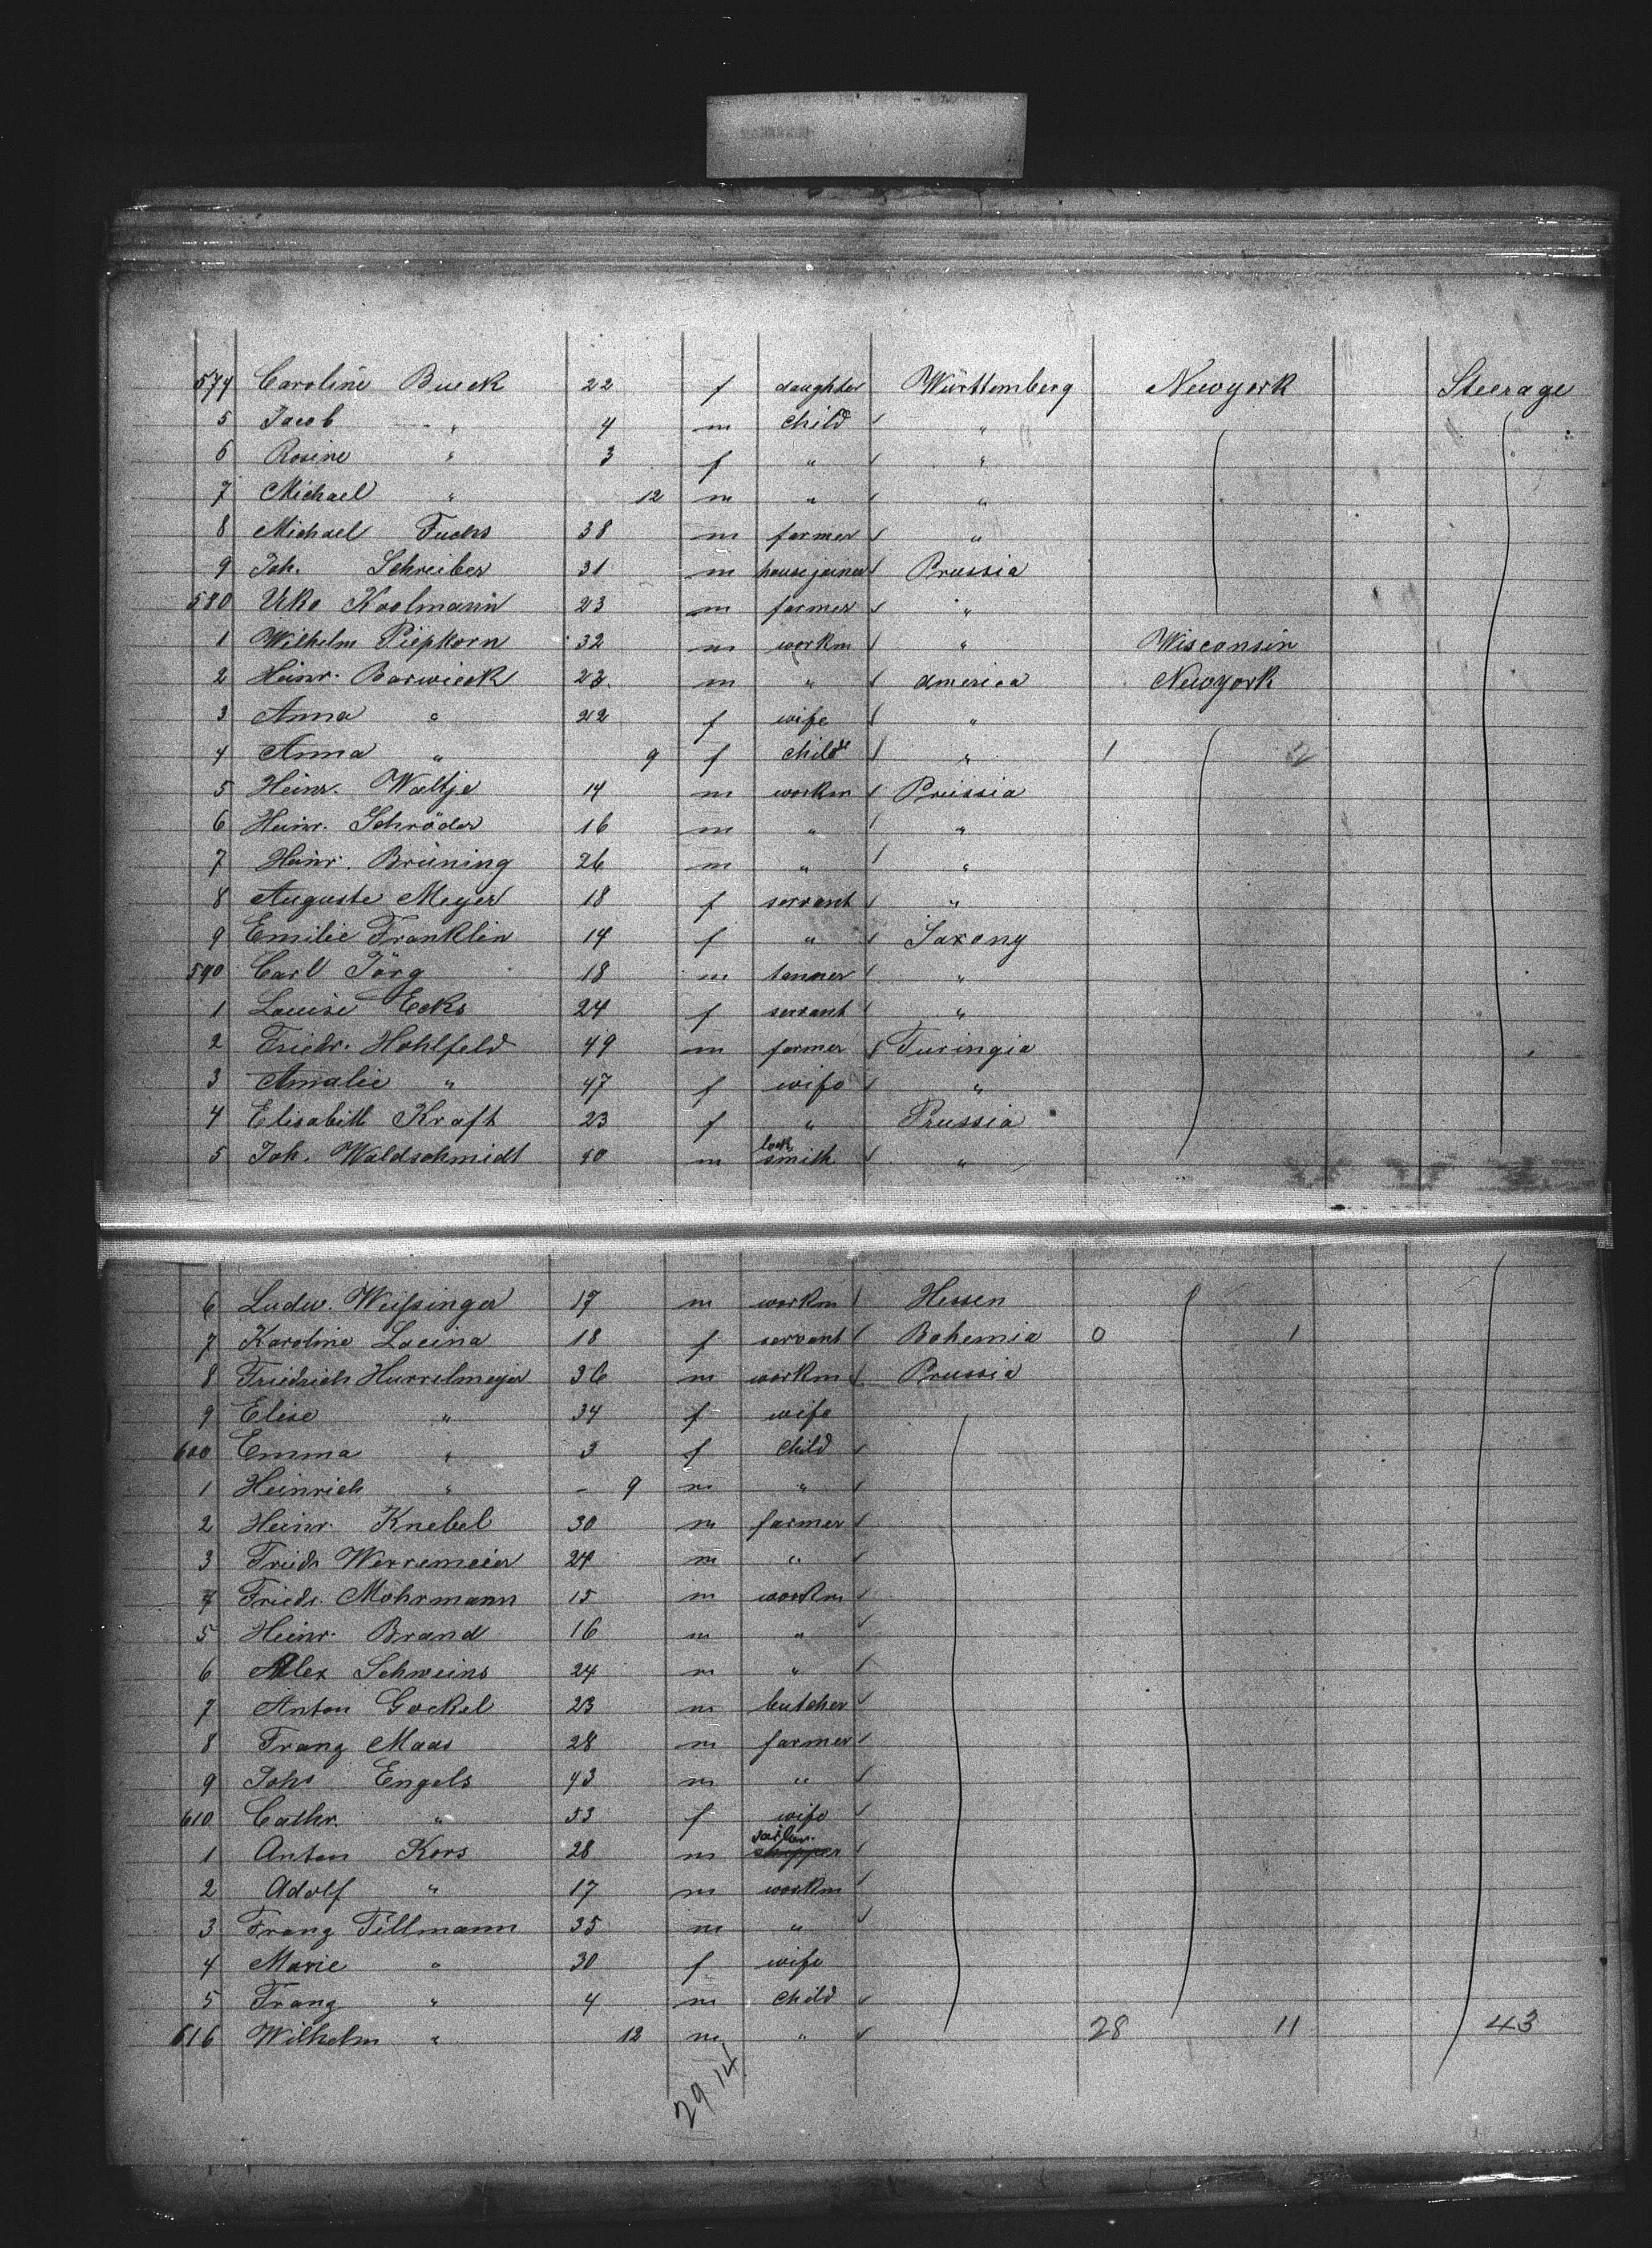 574 Caroline Bueck 22 f daughter Württemberg Newyork Steerage
5 Jacob " 4 m child "
6 Rosine " 3 f " "
7 Michael " 12 m " "
8 Michael Fuchs 38 m farmer "
9 Joh. Schreiber 31 m house joiner Prussia
580 Uko Koolmann 23 m farmer "
1 Wilhelm Piepkorn 32 m workm " Wisconsin
2 Heinr. Barwieck 23 m " America Newyork
3 Anna " 22 f wife "
4 Anna " 9 f child " 1
5 Heinr. Waltje 14 m workm Prussia
6 Heinr. Schröder 16 m " "
7 Heinr. Brüning 26 m " "
8 Auguste Meyer 18 f servant "
9 Emilie Franklin 14 f " Saxony
590 Carl Jörg 18 m tanner "
1 Louise Ecks 24 f servant "
2 Friedr. Hohlfeld 49 m farmer Turingia
3 Amalie " 47 f wife "
4 Elisabith Kraft 23 f " Prussia
5 Joh. Waldschmidt 40 m lock smith "
6 Ludw. Weißinger 17 m workm Hessen
7 Karoline Lacina 18 f servant Bohemia 0 1
8 Friedrich Hurrelmeyer 36 m workm Prussia
9 Elise " 34 f wife
600 Emma " 3 f child
1 Heinrich " - 9 m "
2 Heinr. Knebel 30 m farmer
3 Friedr Werremeier 24 m "
4 Friedr. Mohrmann 15 m workm
5 Heinr. Brand 16 m "
6 Alex Schweins 24 m "
7 Anton Gockel 23 m butcher
8 Franz Maas 28 m farmer
9 Johs Engels 43 m "
610 Cathr. " 53 f wife
1 Anton Kors 28 m
2 Adolf " 17 m workm
3 Franz Tillmann 35 m "
4 Marie " 30 f wife
5 Franz " 4 m child
616 Wilhelm " 12 m " 28 11 43
29 14